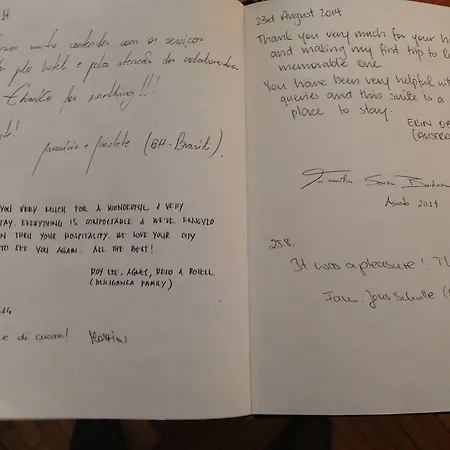 muito contentes com os serviços
pelo hotel e pela atenção dos colaboradores.
Thanks for everything!!!
Maurício e (BH-Brasil).
YOU VERY MUCH FOR A WONDERFUL & VERY
STAY. EVERYTHING IS COMFORTABLE & WE'RE
THRU YOUR HOSPITALITY. WE LOVE YOUR CITY
TO SEE YOU AGAIN. ALL THE BEST!
ROY LEE, AGNES, REID &
(HULIGANGA FAMILY)
14
e di cuore!
23rd August 2014
Thank you very much for your ho
and making my first trip to
memorable one
You have been very helpful wit
queries and this suite is a
place to stay.
ERIN
2014
25.8.
It was a pleasure! Th
Fam. Jens Schulte (